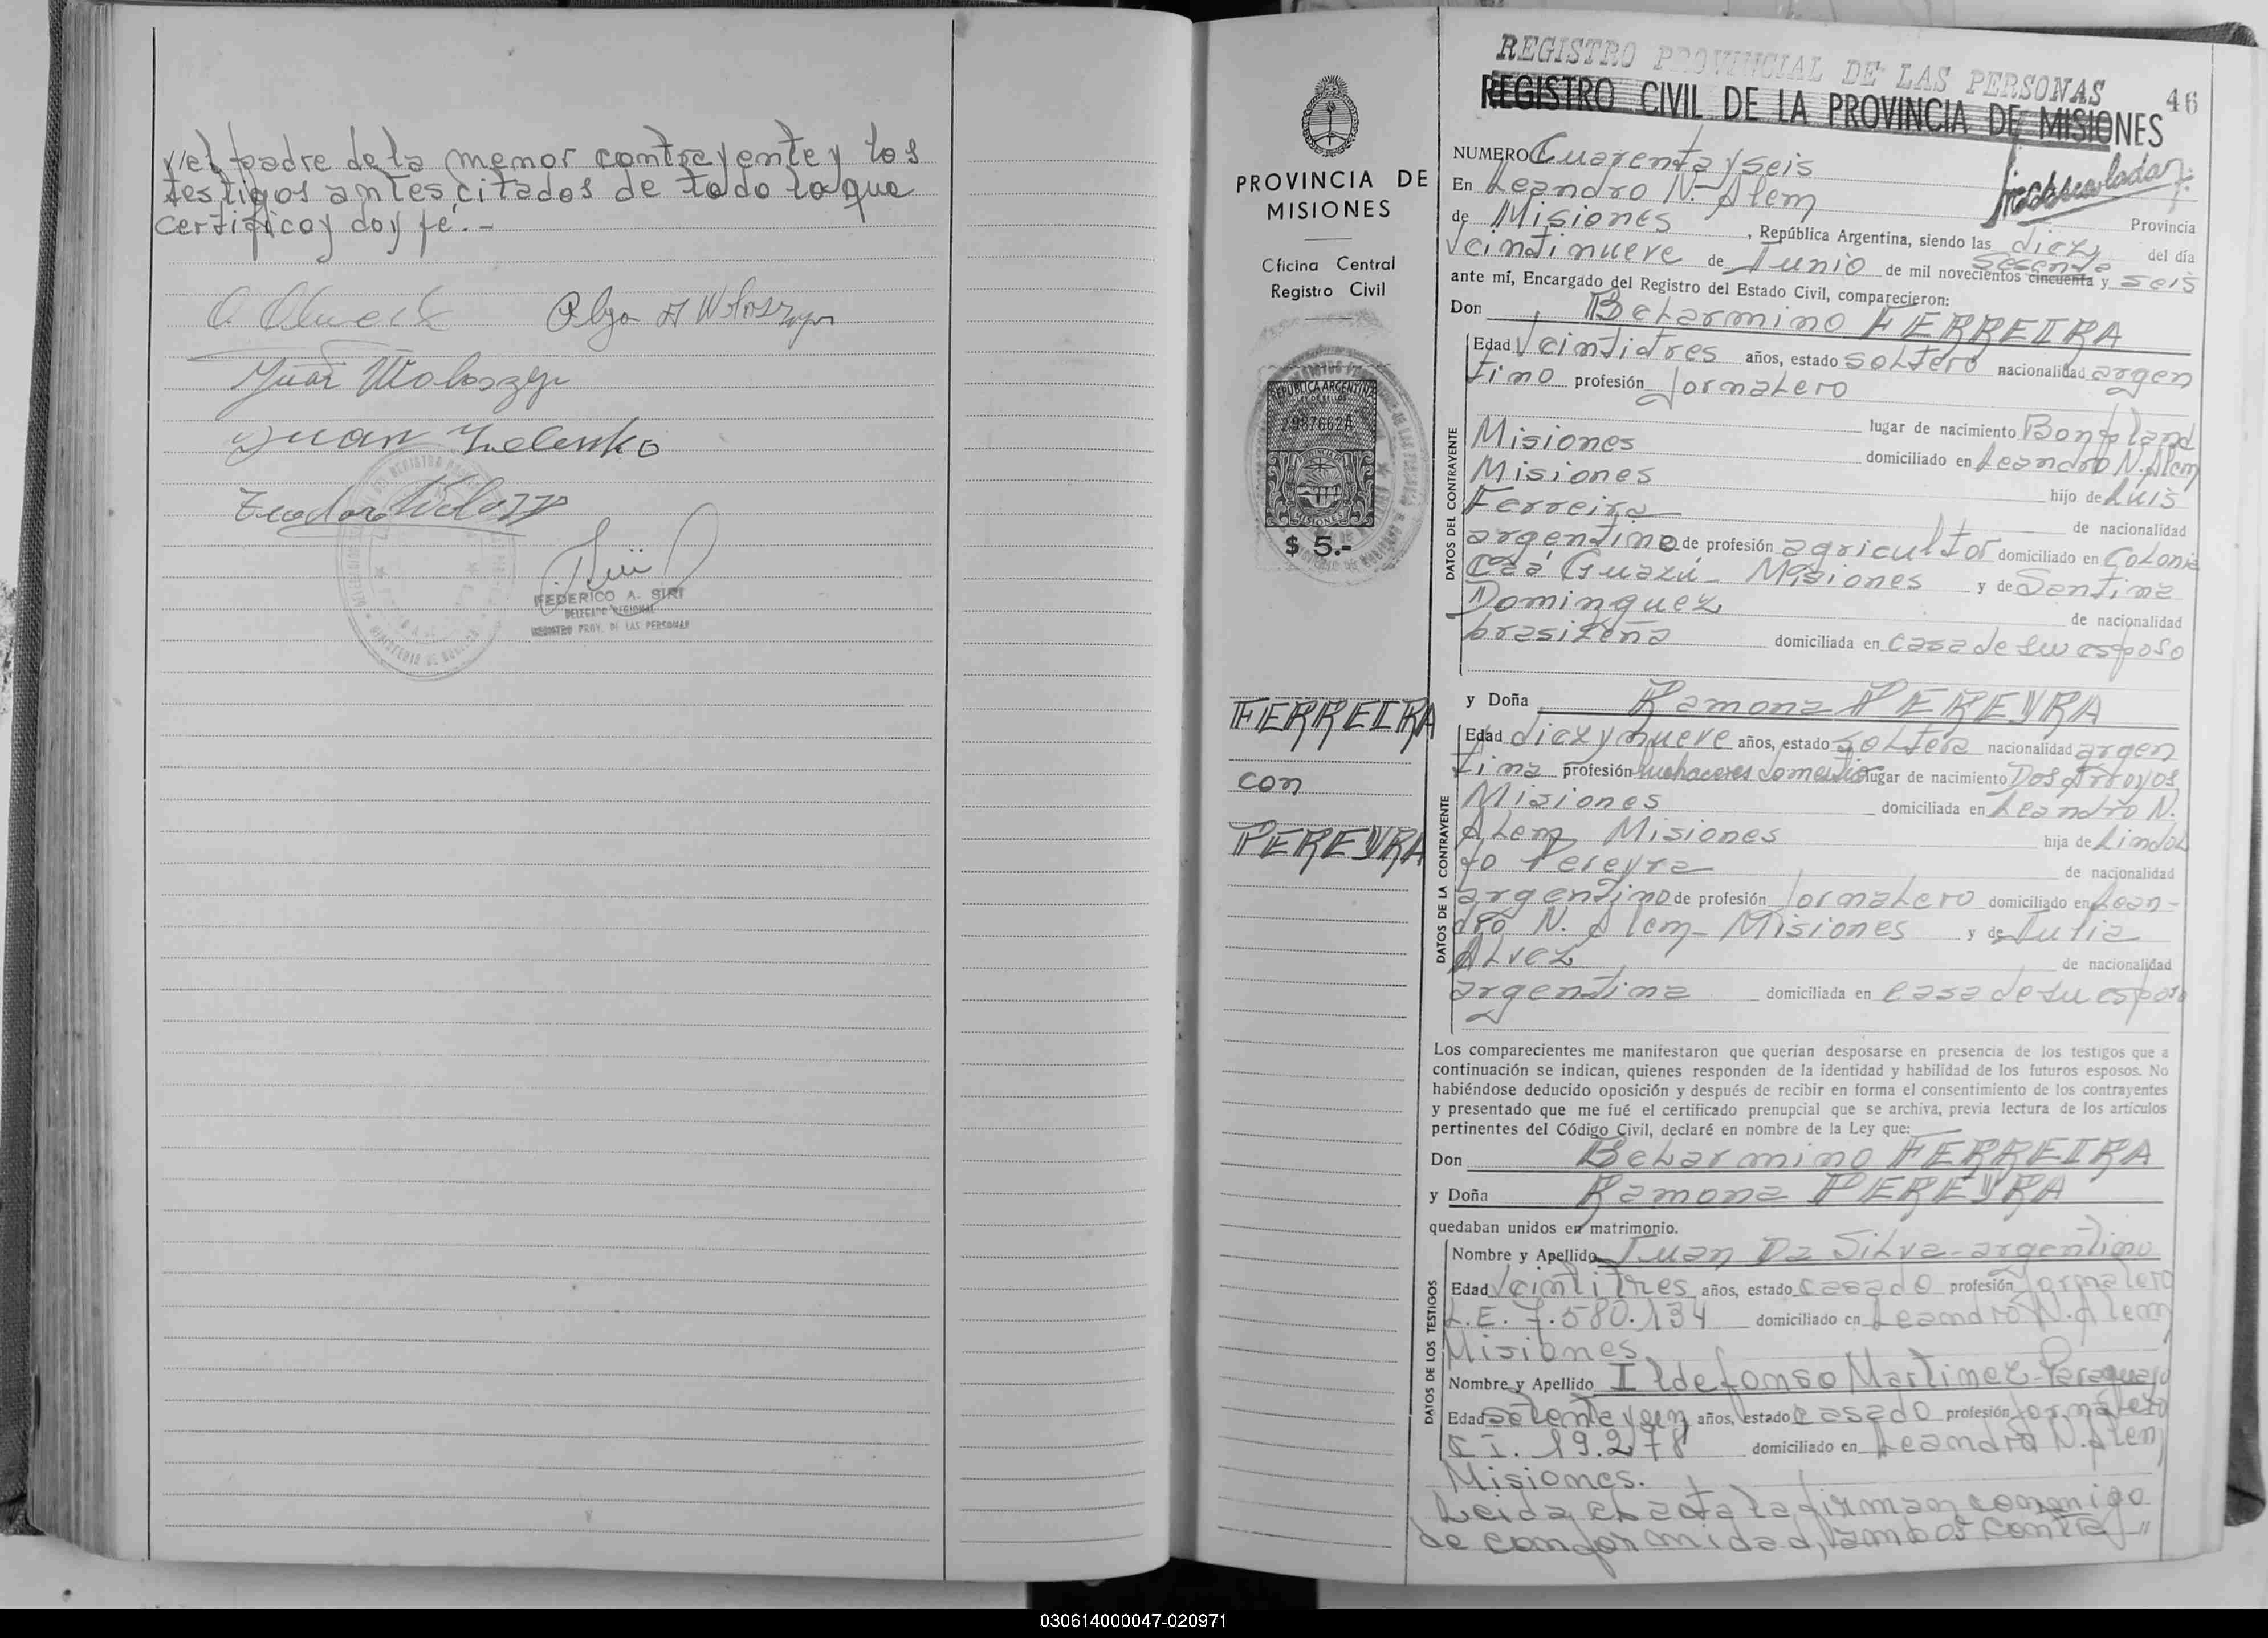 y el padre de la menor contrayente y los
testigos antes citados de todo lo que
certifico y doy fé.-
Olga H Woloszyn
Juan Woloszyn
Juan Zelenko
Teodoro
FEDERICO A. SIRI
DELEGADO REGIONAL
REGISTRO PROV. DE LAS PERSONAS
PROVINCIA DE
MISIONES
Oficina Central
Registro Civil
REPUBLICA ARGENTINA
7987662A
MISIONES
$ 5.-
FERREIRA
con
PEREYRA
REGISTRO PROVINCIAL DE LAS PERSONAS
46
REGISTRO CIVIL DE LA PROVINCIA DE MISIONES
NUMERO Cuarenta y seis
En Leandro N. Alem
Provincia
de Misiones, República Argentina, siendo las diez del día
veintinueve de Junio de mil novecientos cincuenta sesenta y seis
ante mí, Encargado del Registro del Estado Civil, comparecieron:
Don Belarmino FERREIRA
DATOS DEL CONTRAYENTE
Edad Veintidtres años, estado soltero nacionalidad argen
tino profesión Jornalero
lugar de nacimiento Bonpland
Misiones domiciliado en Leandro N. Alem
Misiones hijo de Luis
Ferreira de nacionalidad
argentino de profesión agricultor domiciliado en Colonia
Caá Guazú- Misiones y de Santina
Dominguez de nacionalidad
brasileña domiciliada en casa de su esposo
y Doña Ramona PEREYRA
DATOS DE LA CONTRAYENTE
Edad diezynueve años, estado soltera nacionalidad argen
tina profesión quehaceres domestico lugar de nacimiento Dos Arroyos
Misiones domiciliada en Leandro N.
Alem Misiones hija de Lindol
fo Pereyra de nacionalidad
argentino de profesión Jornalero domiciliado en Lean-
dro N. Alem- Misiones y de Julia
Alvez de nacionalidad
argentina domiciliada en casa de su esposo
Los comparecientes me manifestaron que querían desposarse en presencia de los testigos que a
continuación se indican, quienes responden de la identidad y habilidad de los futuros esposos. No
habiéndose deducido oposición y después de recibir en forma el consentimiento de los contrayentes
y presentado que me fué el certificado prenupcial que se archiva, previa lectura de los artículos
pertinentes del Código Civil, declaré en nombre de la Ley que:
Don Belarmino FERREIRA
y Doña Ramona PEREYRA
quedaban unidos en matrimonio.
DATOS DE LOS TESTIGOS
Nombre y Apellido Juan Da Silva- argentino
Edad Veintitres años, estado casado profesión Jornalero
L.E. 7.580.134 domiciliado en Leandro N. Alem
Misiones
Nombre y Apellido Ildefonso Martinez- Paraguayo
Edad setenta y un años, estado casado profesión Jornalero
C I. 19.278 domiciliado en Leandro N. Alem
Misiones.
Leida el acta la firman conmigo
de conformidad, ambos contra_"
030614000047-020971